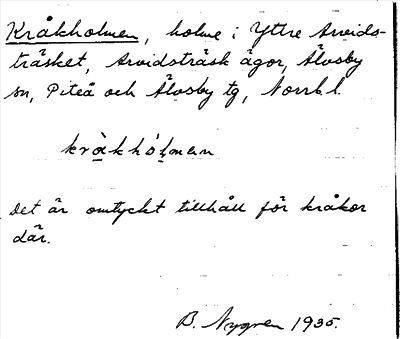 Kråkholmen, holme i Yttre Arvids-
träsket, Arvidsträsk ägor, Älvsby
sn, Piteå och Älvsby tg, Norrb. l.
kråkhólmen
Det är omtyckt tillhåll för kråkor
där.
B. Nygren 1935.